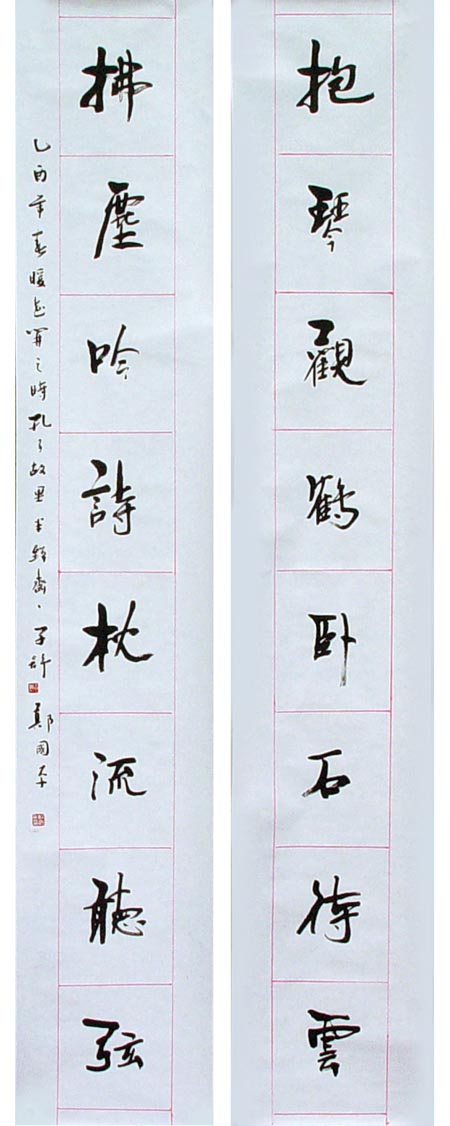 抱琴觀鶴臥石待雲
拂塵吟詩枕流聽弦
乙酉年春暖花開之時孔子故里書於齋 子 鄭國平